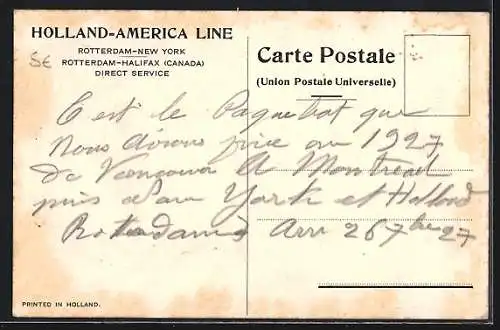 HOLLAND-AMERICA LINE
ROTTERDAM-NEW YORK
ROTTERDAM-HALIFAX (CANADA)
DIRECT SERVICE
5€
Carte Postale
(Union Postale Universelle)
C est le Paquebot que
Nous avions prise en 1927
de Vancouver A Montreal
puis York et Holland
Rotterdam Arri 26 7bre 27
PRINTED IN HOLLAND.